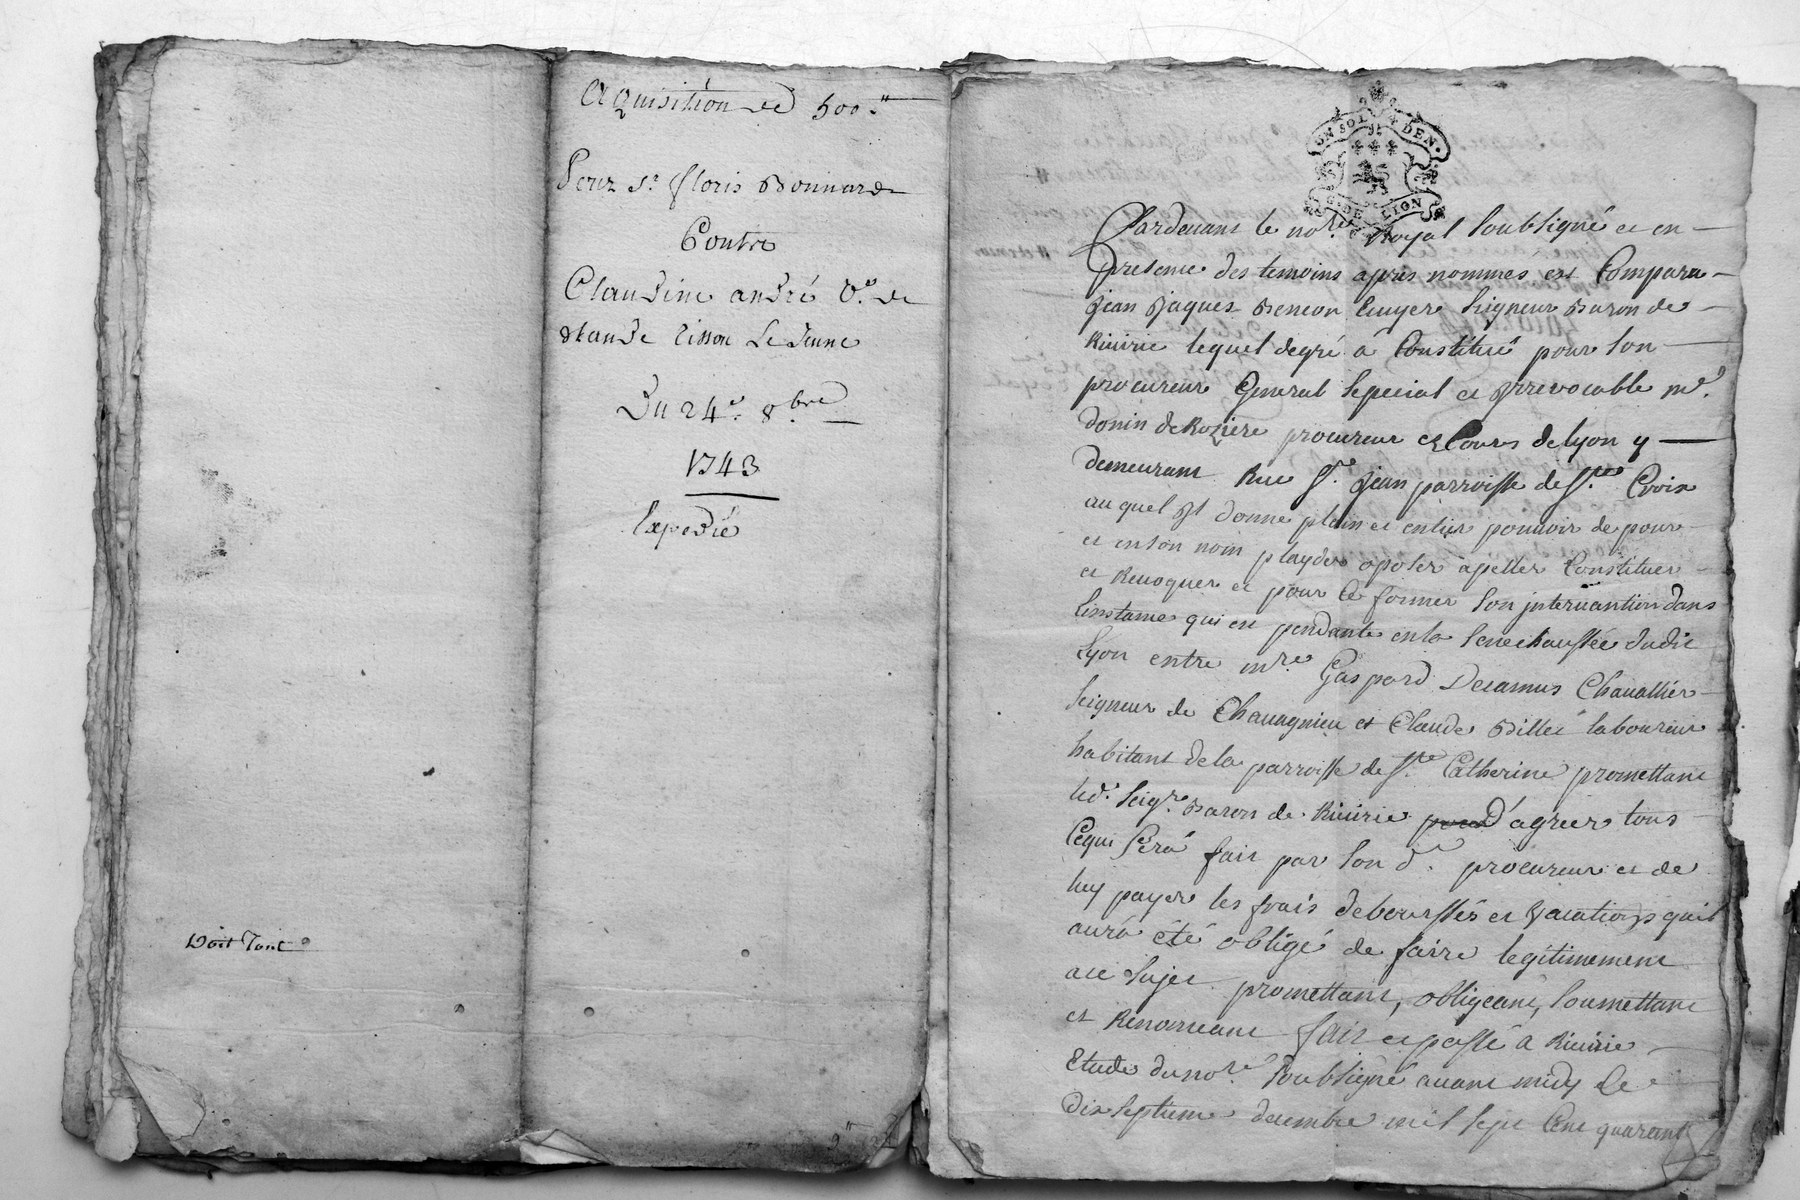 Aquisition de 500.tt
Pour Sr. floris Bonnard
Contre
Claudine andré Ve. de
Claude Cisson Le Jeune
Du 24e. 8bre
1743
Expedié
Doit Tant
UN SOL 4 DEN.
G. DE LION
Pardeuant le nore. Royal soubsigné et en
presence des temoins apres nommes est Comparu
Jean Jaques Beneon Ecuyer Seigneur Baron de
Riuirie lequel degré á Constitué pour son
procureur General Special et Jrrevocable me.
donin de Rozière procureur es Cours de Lyon y
demeurant Rue St. Jean parroisse de Ste. Croix
au quel Jl donne plein et entier pouuoir de pour
et en son nom playder oposer apeller Constituer
et Reuoquer et pour Ce former son jnteruantion dans
Linstance qui est pendante en la Senechaussée dudit
Lyon entre mre. Gaspard Decamus Cheuallier
Seigneur de Chauagnieu et Claude Billet laboureur
habitant de la parroisse de Ste. Catherine promettant
led. Seigr. Baron de Riuirie d'agréer tous
Cequi Será fait par son d. procureur et de
luy payer les frais deboursés et vacations quil
aurá été obligé de faire legitimement
a ce Sujet promettant, obligeant, soumettant
et Renonceant fait et passé a Riuirie
Etude du nore. Soubsigné auant midy Le
dix Septieme decembre mil sept Cent quarant